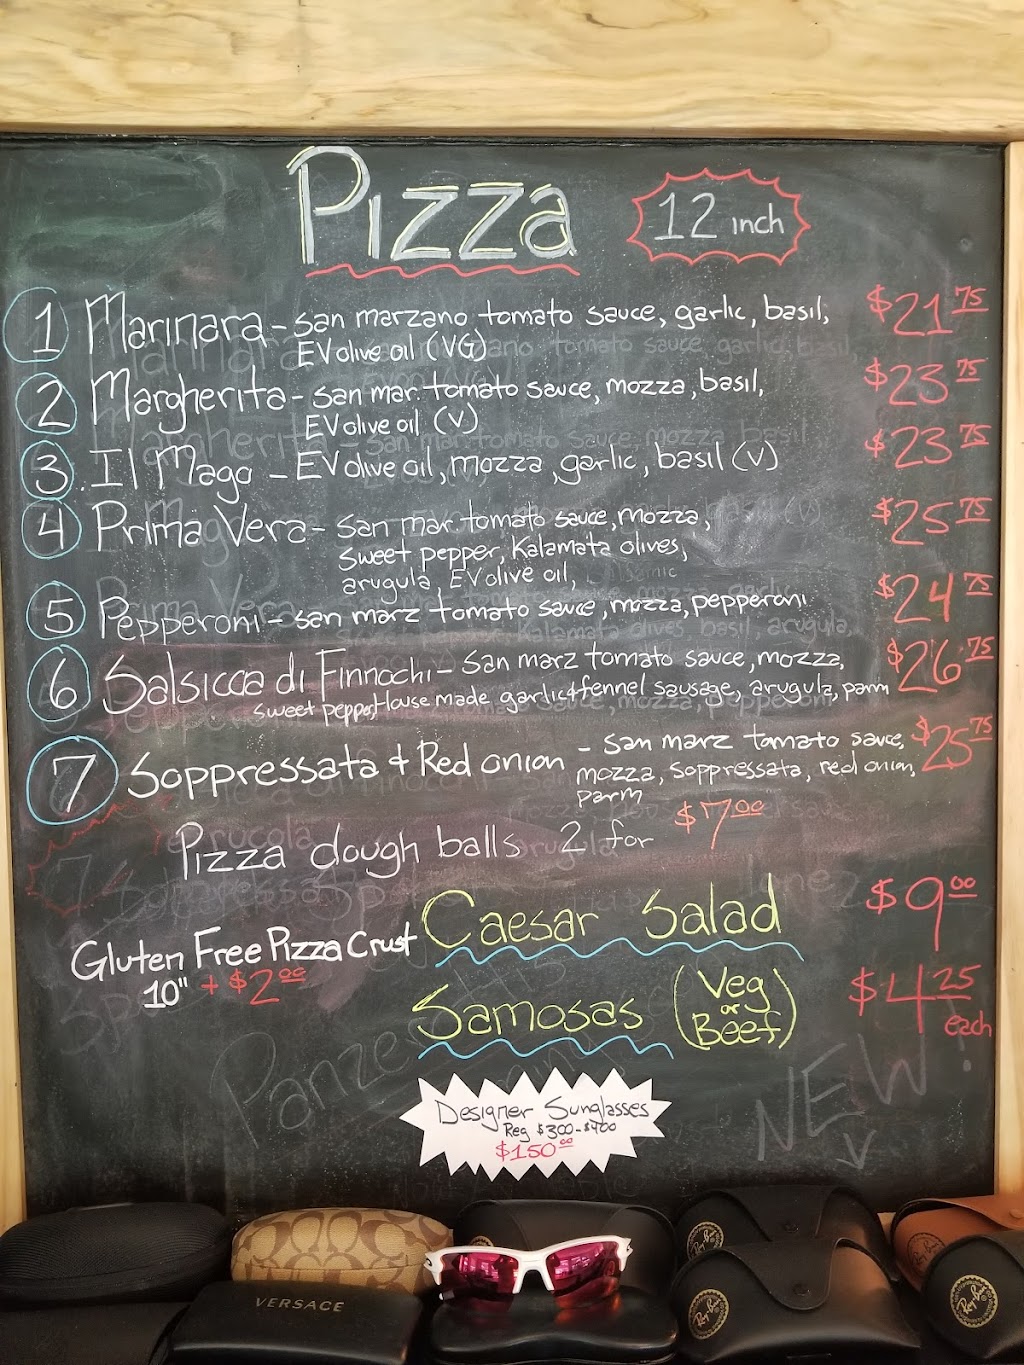 Pizza
12 inch
1 Marinara - san marzano tomato sauce, garlic, basil, $21 75
EV olive oil (VG)
2 Margherita - san mar. tomato sauce, mozza, basil, $23 75
EV olive oil (V)
3. Il Mago - EV olive oil, mozza, garlic, basil (V) $23 75
4 Prima Vera - san mar tomato sauce, mozza, $25 75
sweet pepper, Kalamata olives,
arugula, EV olive oil,
5 Pepperoni - san marz tomato sauce, mozza, pepperoni $24 75
6 Salsicca di Finnochi - san marz tomato sauce, mozza, $26 75
sweet pepper, House made garlic & fennel sausage, arugula, parm
7 Soppressata & Red onion - san marz tomato sauce, $25 75
mozza, soppressata, red onion,
parm
Pizza dough balls 2 for $7 00
Caesar Salad $9 00
Gluten Free Pizza Crust
10" + $2 00
Samosas (Veg or Beef) $4 25 each
Panze
NEW!
Designer Sunglasses
Reg $300-$400
$150 00
VERSACE
Ray-Ban
Ray-Ban
Ray-Ban
Ray-Ban